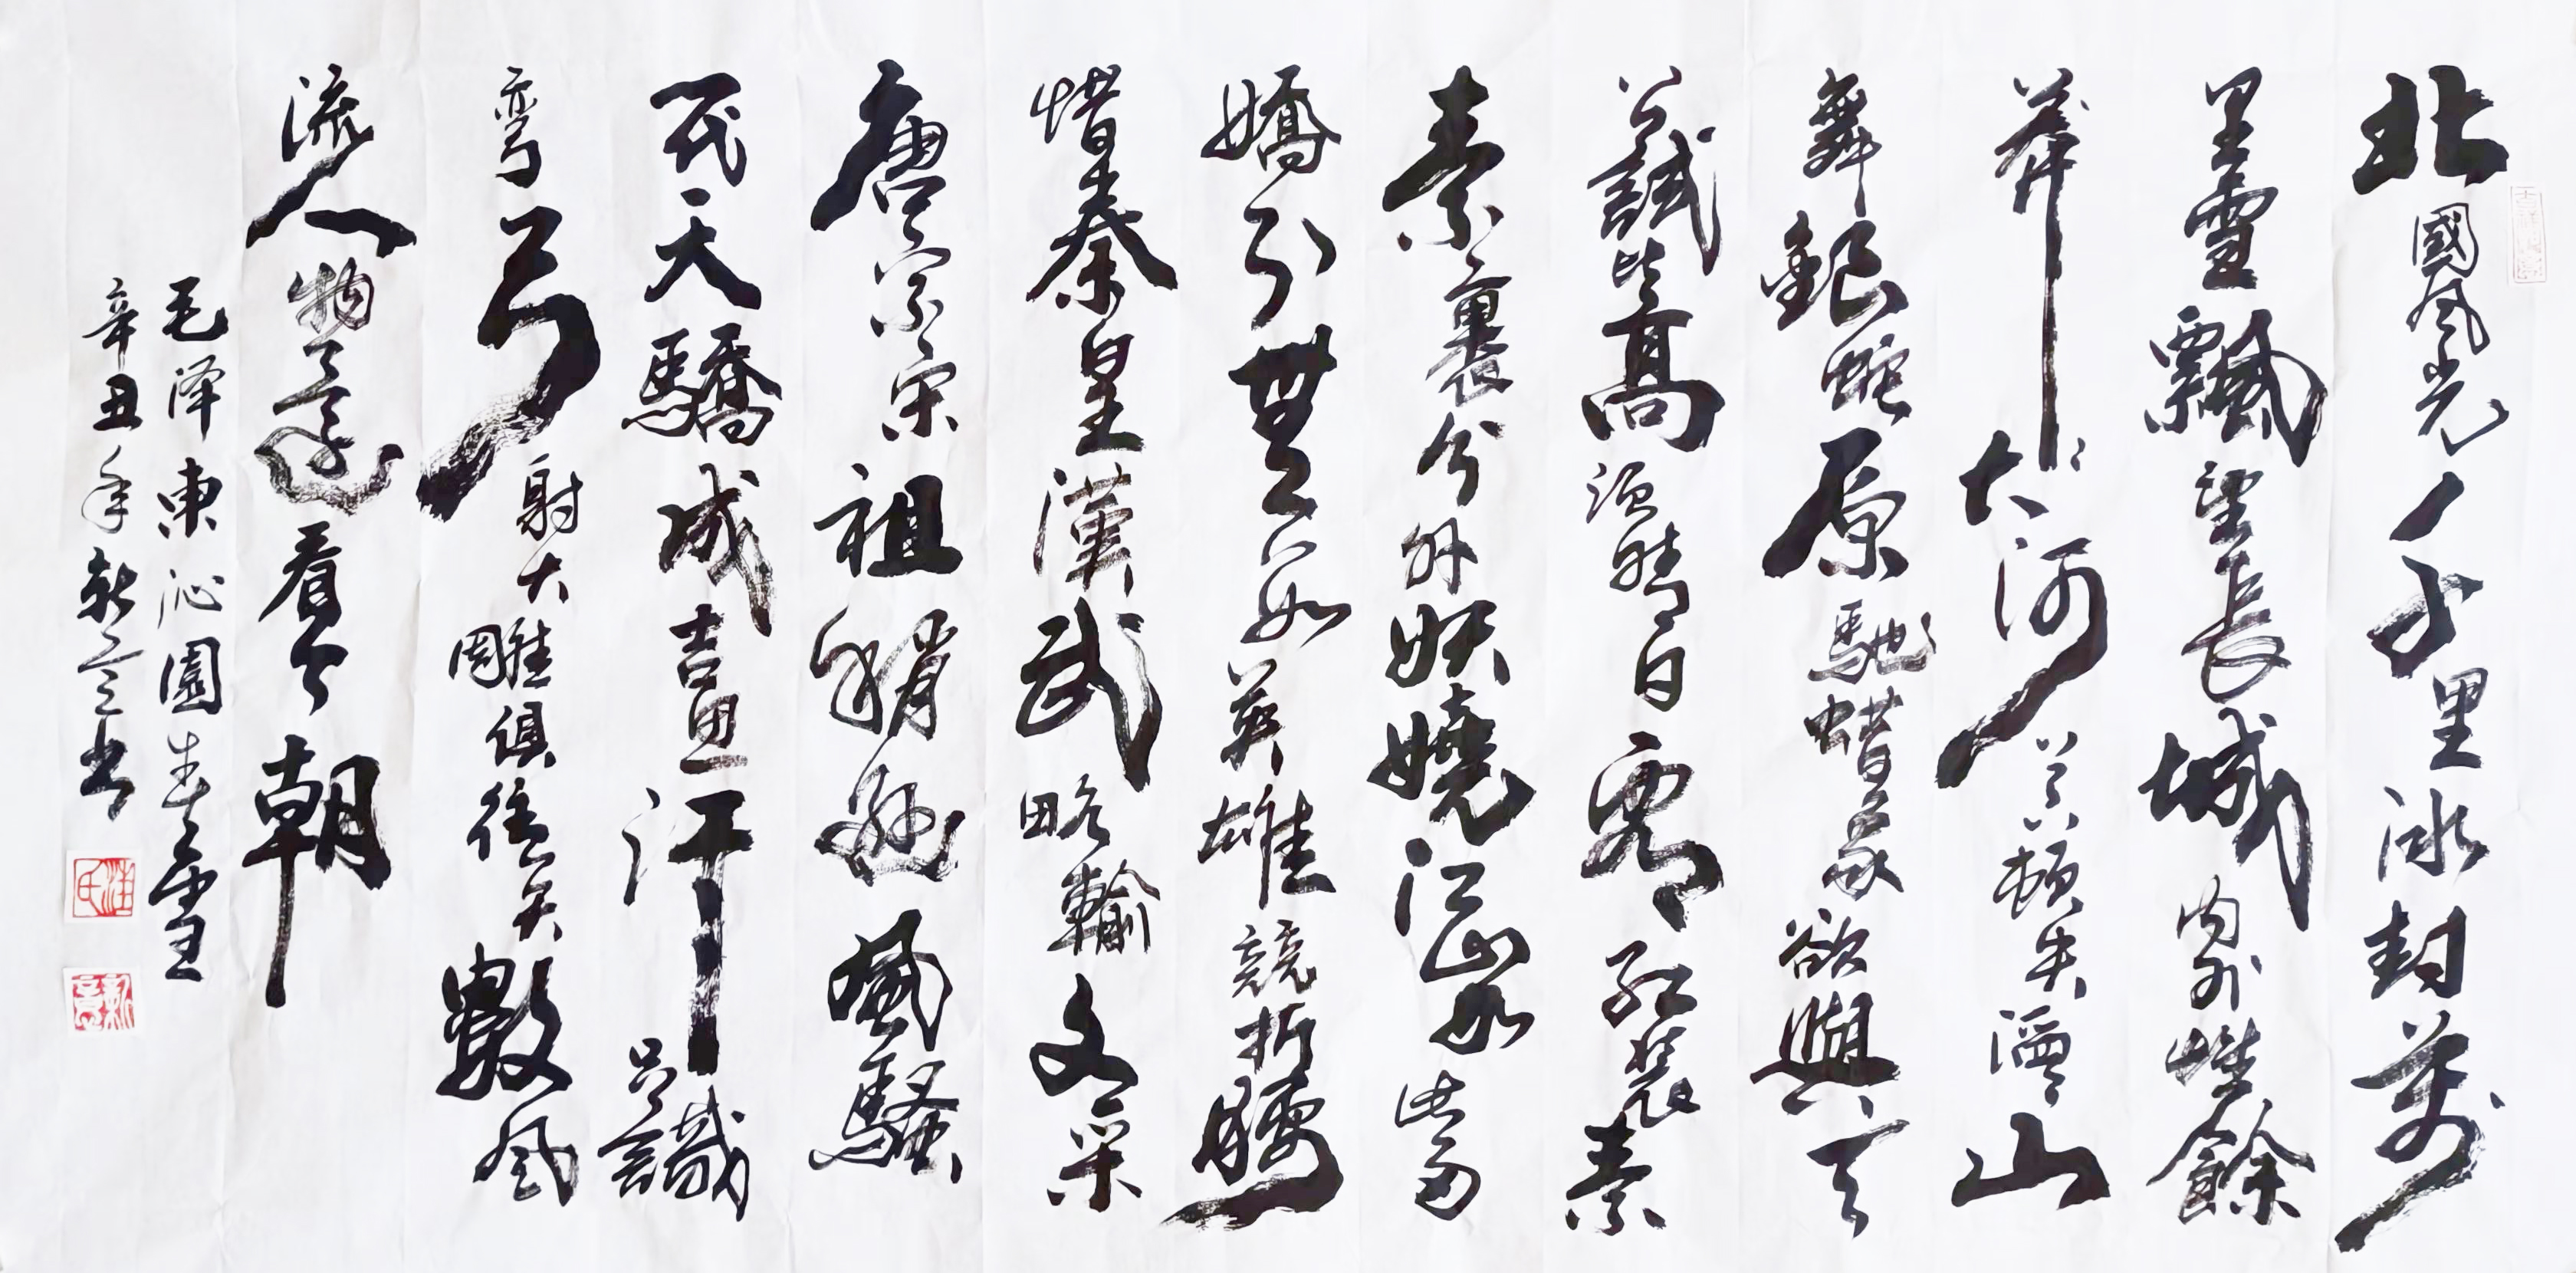 北國风光千里冰封萬
里雪飄望長城内外惟餘
莽〻大河上下頓失滔〻山
舞銀蛇原馳蜡象欲與天
公試比高須晴日看红装素
素裹分外妖嬈江山如此多
嬌引無数英雄競折腰
惜秦皇漢武略輸文采
唐宗宋祖稍遜風騷
一代天驕成吉思汗只識
弯弓射大雕俱往矣數风
流人物還看今朝
毛泽東沁園春雪
辛丑年新意书
汪氏
新意